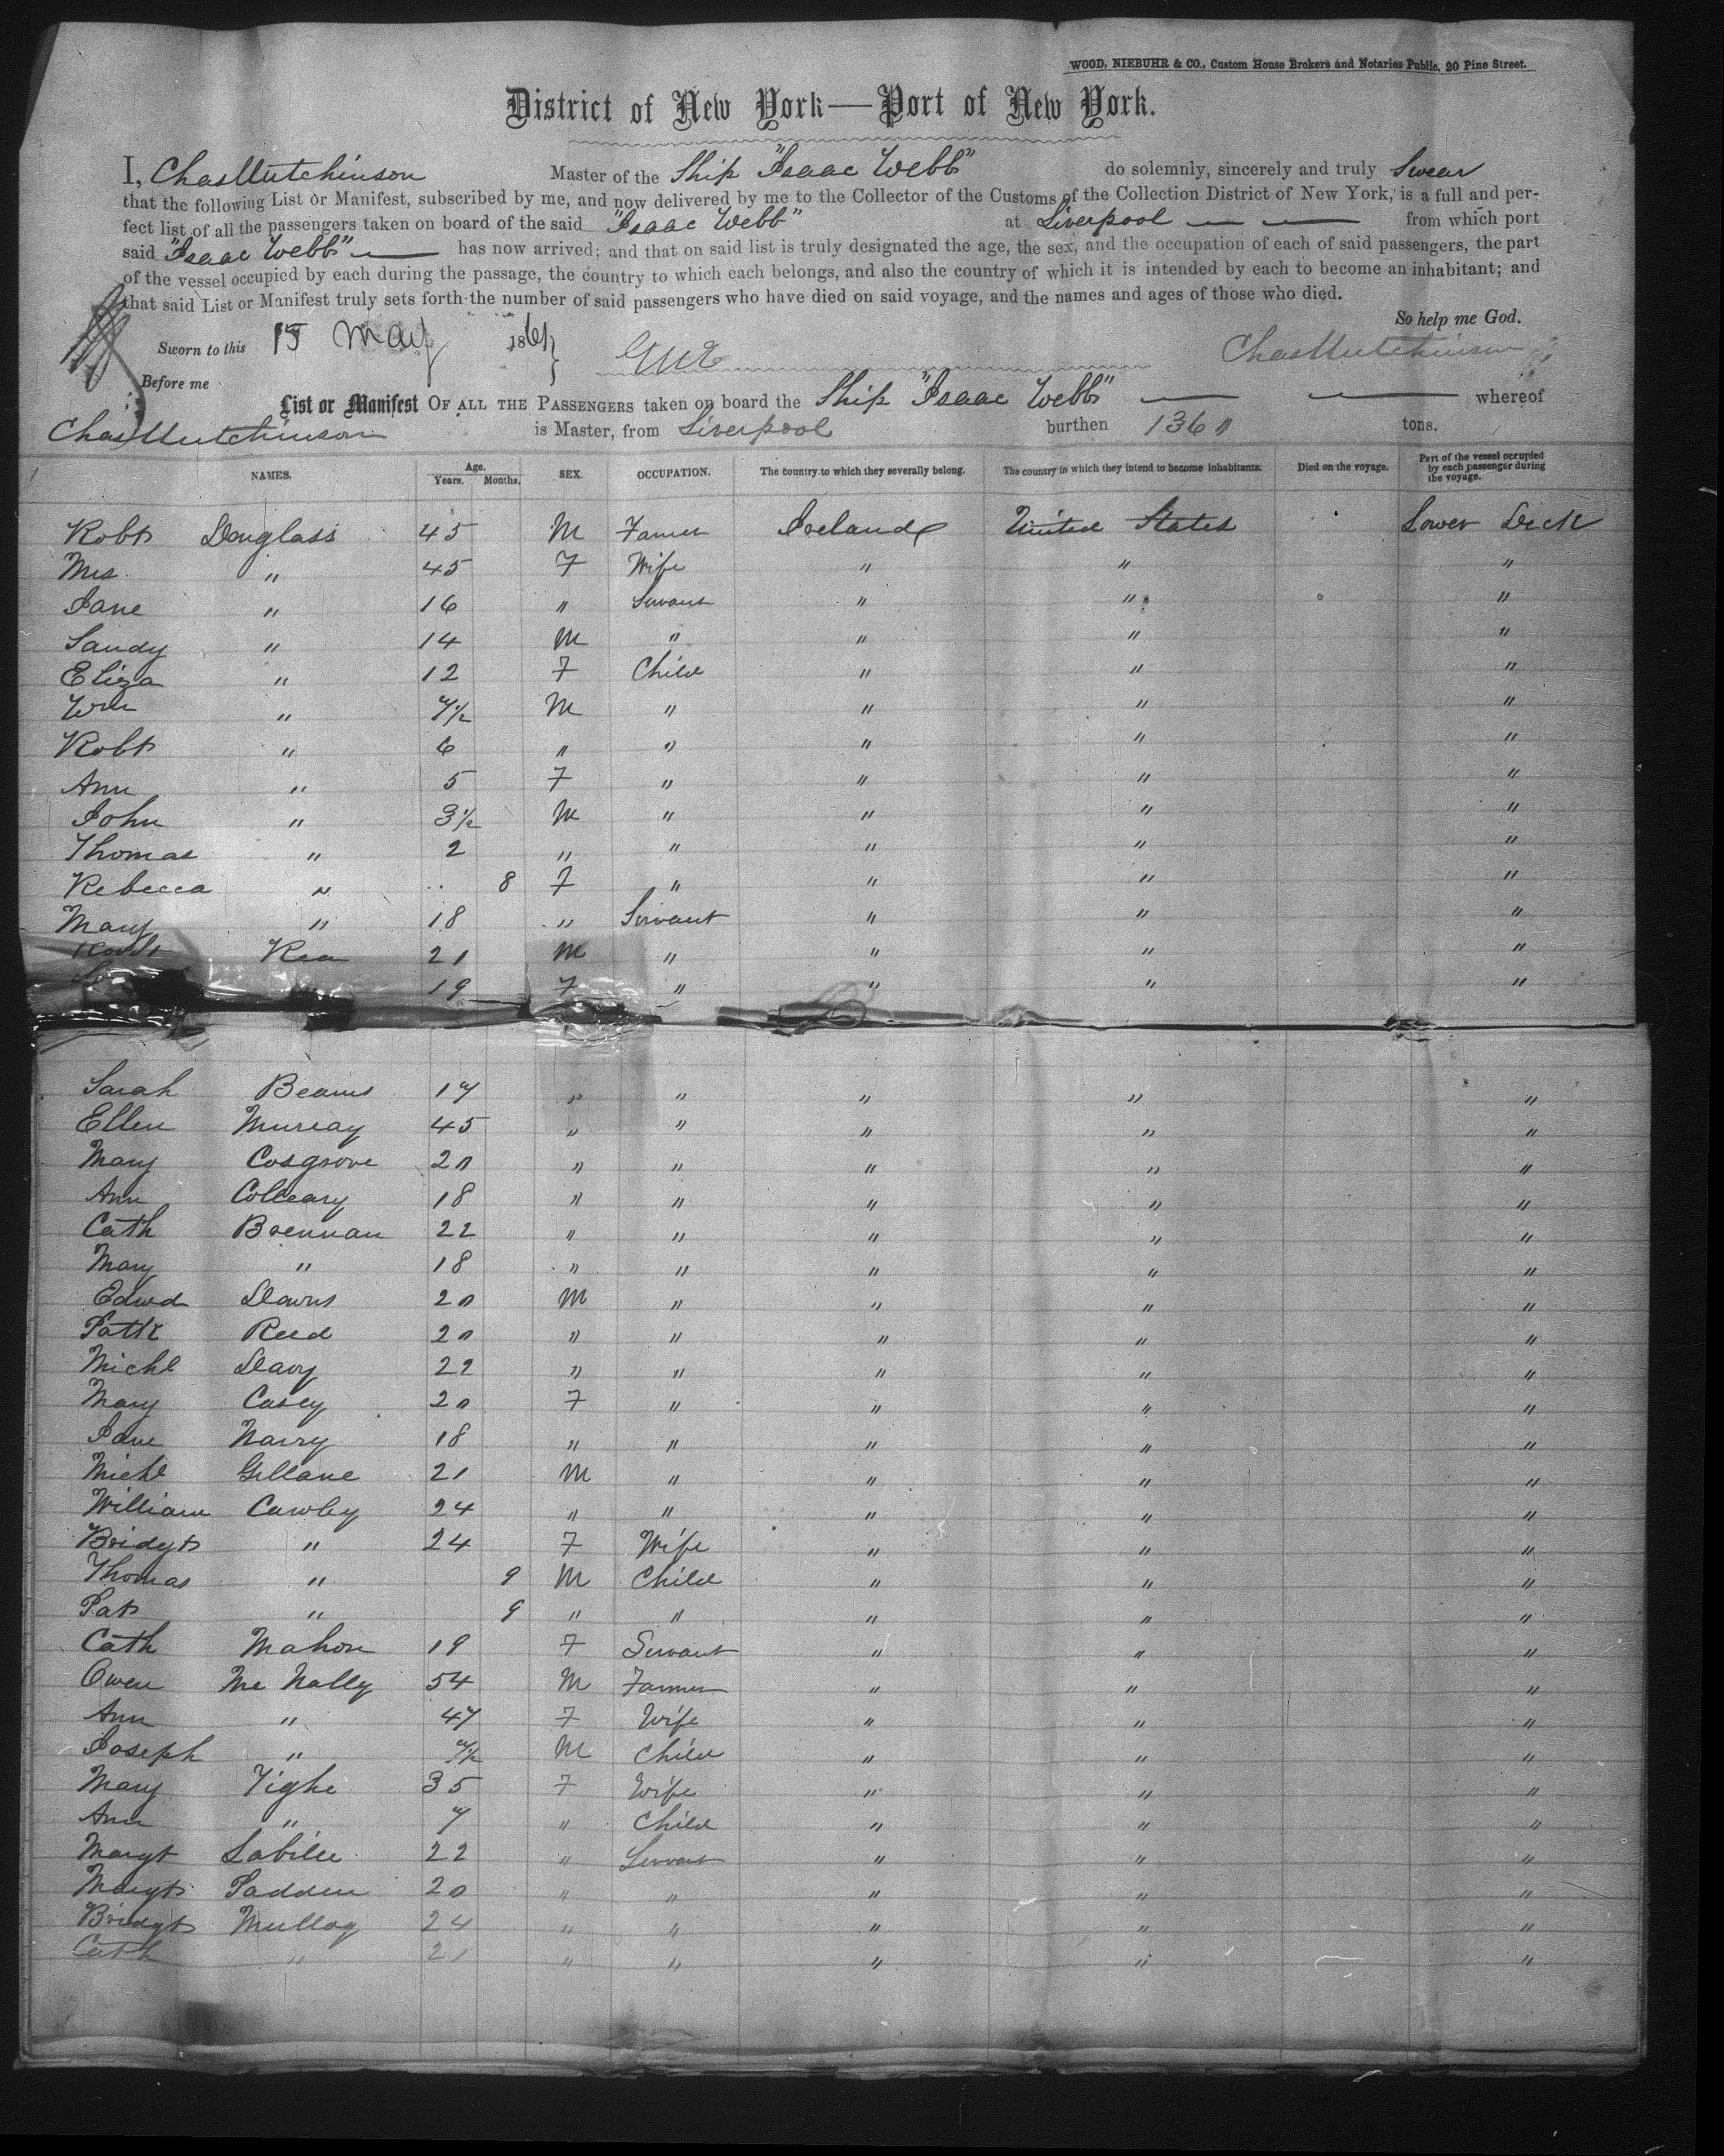 WOOD, NIEBUHR & CO., Custom House Brokers and Notaries Public, 20 Pine Street.
District of New York—Port of New York.
I, Chas Hutchinson Master of the Ship "Isaac Webb" do solemnly, sincerely and truly Swear
that the following List or Manifest, subscribed by me, and now delivered by me to the Collector of the Customs of the Collection District of New York, is a full and per-
fect list of all the passengers taken on board of the said "Isaac Webb" at Liverpool from which port
said "Isaac Webb" has now arrived; and that on said list is truly designated the age, the sex, and the occupation of each of said passengers, the part
of the vessel occupied by each during the passage, the country to which each belongs, and also the country of which it is intended by each to become an inhabitant; and
that said List or Manifest truly sets forth the number of said passengers who have died on said voyage, and the names and ages of those who died.
So help me God.
Sworn to this 15 May 1861
Chas Hutchinson
Before me
List or Manifest OF ALL THE PASSENGERS taken on board the Ship "Isaac Webb" whereof
Chas Hutchinson is Master, from Liverpool burthen 1360 tons.
NAMES. Age. Years. Months. SEX. OCCUPATION. The country to which they severally belong. The country in which they intend to become inhabitants. Died on the voyage. Part of the vessel occupied by each passenger during the voyage.
Robt Douglass 45 M Farmer Ireland United States Lower Deck
Mrs. " 45 F Wife " " "
Jane " 16 " Servant " " "
Sandy " 14 M " " " "
Eliza " 12 F Child " " "
Wm " 7½ M " " " "
Robt " 6 " " " " "
Ann " 5 F " " " "
John " 3½ M " " " "
Thomas " 2 " " " " "
Rebecca " 8 F " " " "
Mary " 18 " Servant " " "
Robt Rea 21 M " " " "
19 F " " " "
Sarah Beams 17 " " " " "
Ellen Murray 45 " " " " "
Mary Cosgrove 20 " " " " "
Ann Colleary 18 " " " " "
Cath Brennan 22 " " " " "
Mary " 18 " " " " "
Edwd Downs 20 M " " " "
Patk Reed 20 " " " " "
Michl Davy 22 " " " " "
Mary Casey 20 F " " " "
Jane Narry 18 " " " " "
Michl Gillane 21 M " " " "
William Cawley 24 " " " " "
Bridgt " 24 F Wife " " "
Thomas " 9 M Child " " "
Pat " 9 " " " " "
Cath Mahon 19 F Servant " " "
Owen McNally 54 M Farmer " " "
Ann " 47 F Wife " " "
Joseph " 7½ M Child " " "
Mary Tighe 35 F Wife " " "
Ann " 7 " Child " " "
Margt 22 " Servant " " "
Margt Padden 20 " " " " "
Bridgt Mulloy 24 " " " " "
Cath " 21 " " " " "